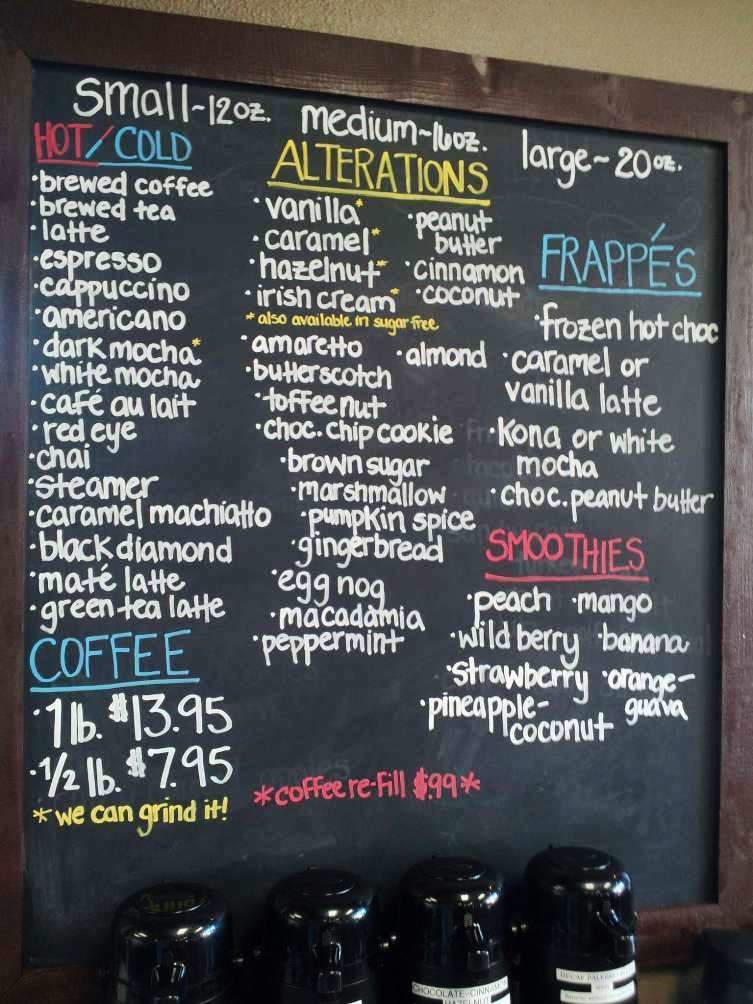 small~12oz. medium~16oz. large~20oz.
HOT/COLD
·brewed coffee
·brewed tea
·latte
·espresso
·cappuccino
·americano
·dark mocha*
·white mocha
·café au lait
·red eye
·chai
·steamer
·caramel machiatto
·black diamond
·maté latte
·green tea latte
COFFEE
·1 lb. $13.95
·1/2 lb. $7.95
*we can grind it!
ALTERATIONS
·vanilla* ·peanut
butter
·caramel*
·hazelnut* ·cinnamon
·irish cream* ·coconut
*also available in sugar free
·amaretto ·almond
·butterscotch
·toffee nut
·choc. chip cookie
·brown sugar
·marshmallow
·pumpkin spice
·gingerbread
·egg nog
·macadamia
·peppermint
*coffee re-fill $.99*
FRAPPÉS
·frozen hot choc
·caramel or
vanilla latte
·Kona or white
mocha
·choc. peanut butter
SMOOTHIES
·peach ·mango
·wild berry ·banana
·strawberry ·orange-
guava
·pineapple-
coconut
CHOCOLATE-CINNAM
HAZELNUT
DECAF